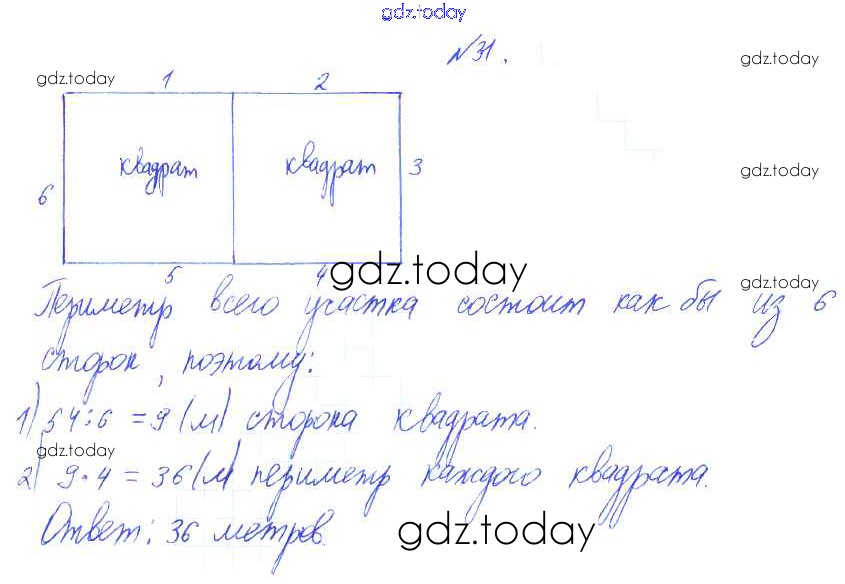 gdz.today
№31.
gdz.today
gdz.today 1 2
квадрат квадрат 3
gdz.today
6
5 4
gdz.today
gdz.today
Периметр всего участка состоит как бы из 6
сторон, поэтому:
1) 54:6 = 9 (м) сторона квадрата.
gdz.today
2) 9·4 = 36 (м) периметр каждого квадрата.
Ответ: 36 метров.
gdz.today